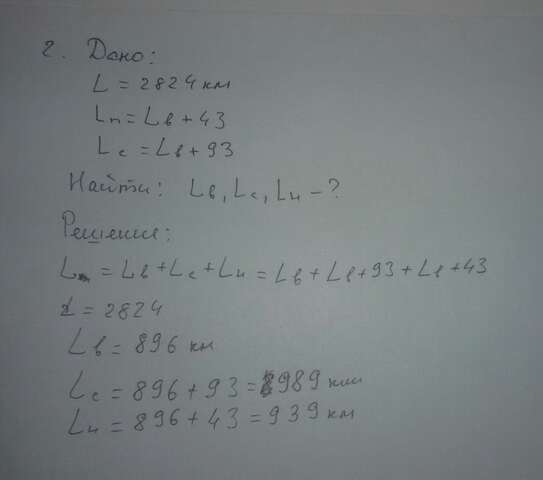 2. Дано:
L = 2824 км
Lп = Lв + 43
Lс = Lв + 93
Найти: Lв, Lс, Lн - ?
Решение:
L = Lв + Lс + Lн = Lв + Lв + 93 + Lв + 43
L = 2824
Lв = 896 км
Lс = 896 + 93 = 989 км
Lн = 896 + 43 = 939 км